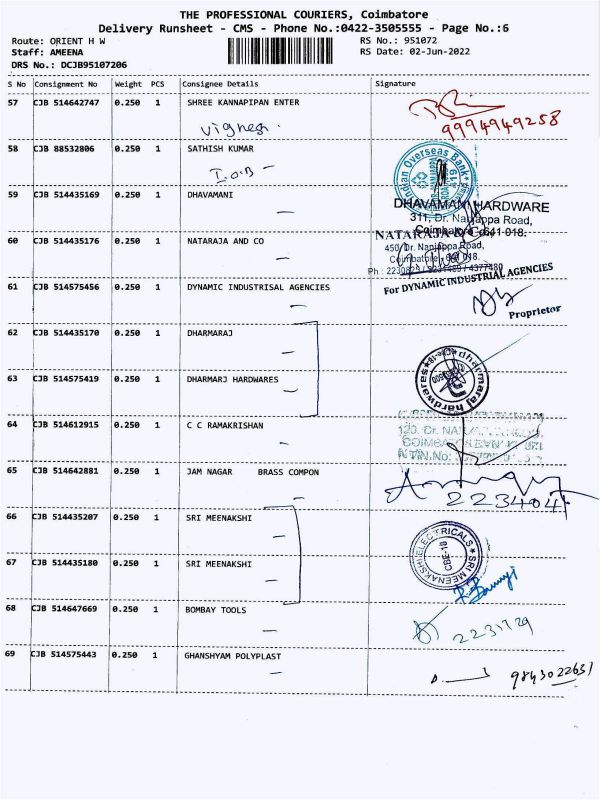 THE PROFESSIONAL COURIERS, Coimbatore
Delivery Runsheet - CMS - Phone No.:0422-3505555 - Page No.:6
Route: ORIENT H W RS No.: 951072
Staff: AMEENA RS Date: 02-Jun-2022
DRS No.: DCJB95107206
S No Consignment No Weight PCS Consignee Details Signature
57 CJB 514642747 0.250 1 SHREE KANNAPIPAN ENTER
9994949258
58 CJB 88532806 0.250 1 SATHISH KUMAR
I.O.B
Indian Overseas Bank
59 CJB 514435169 0.250 1 DHAVAMANI
DHAVAMANI HARDWARE
311, Dr. Nanjappa Road,
Coimbatore - 641 018.
60 CJB 514435176 0.250 1 NATARAJA AND CO
NATARAJA & Co.
450, Dr. Nanjappa Road,
Coimbatore - 641 018
61 CJB 514575456 0.250 1 DYNAMIC INDUSTRISAL AGENCIES
For DYNAMIC INDUSTRIAL AGENCIES
Proprietor
62 CJB 514435170 0.250 1 DHARMARAJ
63 CJB 514575419 0.250 1 DHARMARJ HARDWARES
dharmaraj hardwares
64 CJB 514612915 0.250 1 C C RAMAKRISHAN
65 CJB 514642881 0.250 1 JAM NAGAR BRASS COMPON
66 CJB 514435207 0.250 1 SRI MEENAKSHI
67 CJB 514435180 0.250 1 SRI MEENAKSHI
SRI MEENAKSHI ELECTRICALS
CBE-18
68 CJB 514647669 0.250 1 BOMBAY TOOLS
69 CJB 514575443 0.250 1 GHANSHYAM POLYPLAST
9843022631